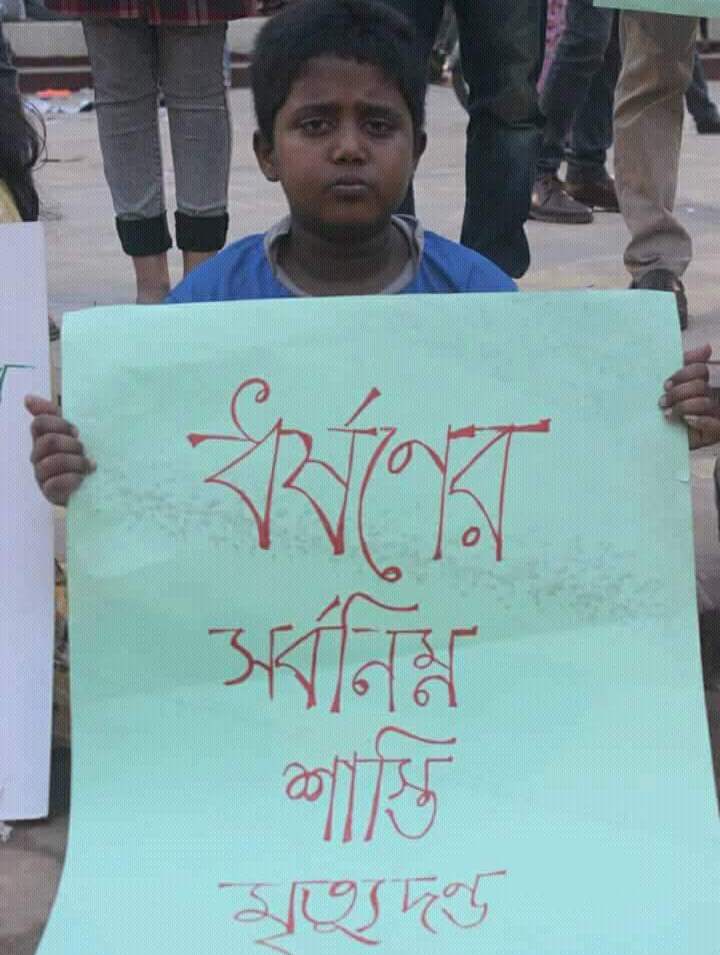 ধর্ষণের
সর্বনিম্ন
শাস্তি
মৃত্যুদন্ড